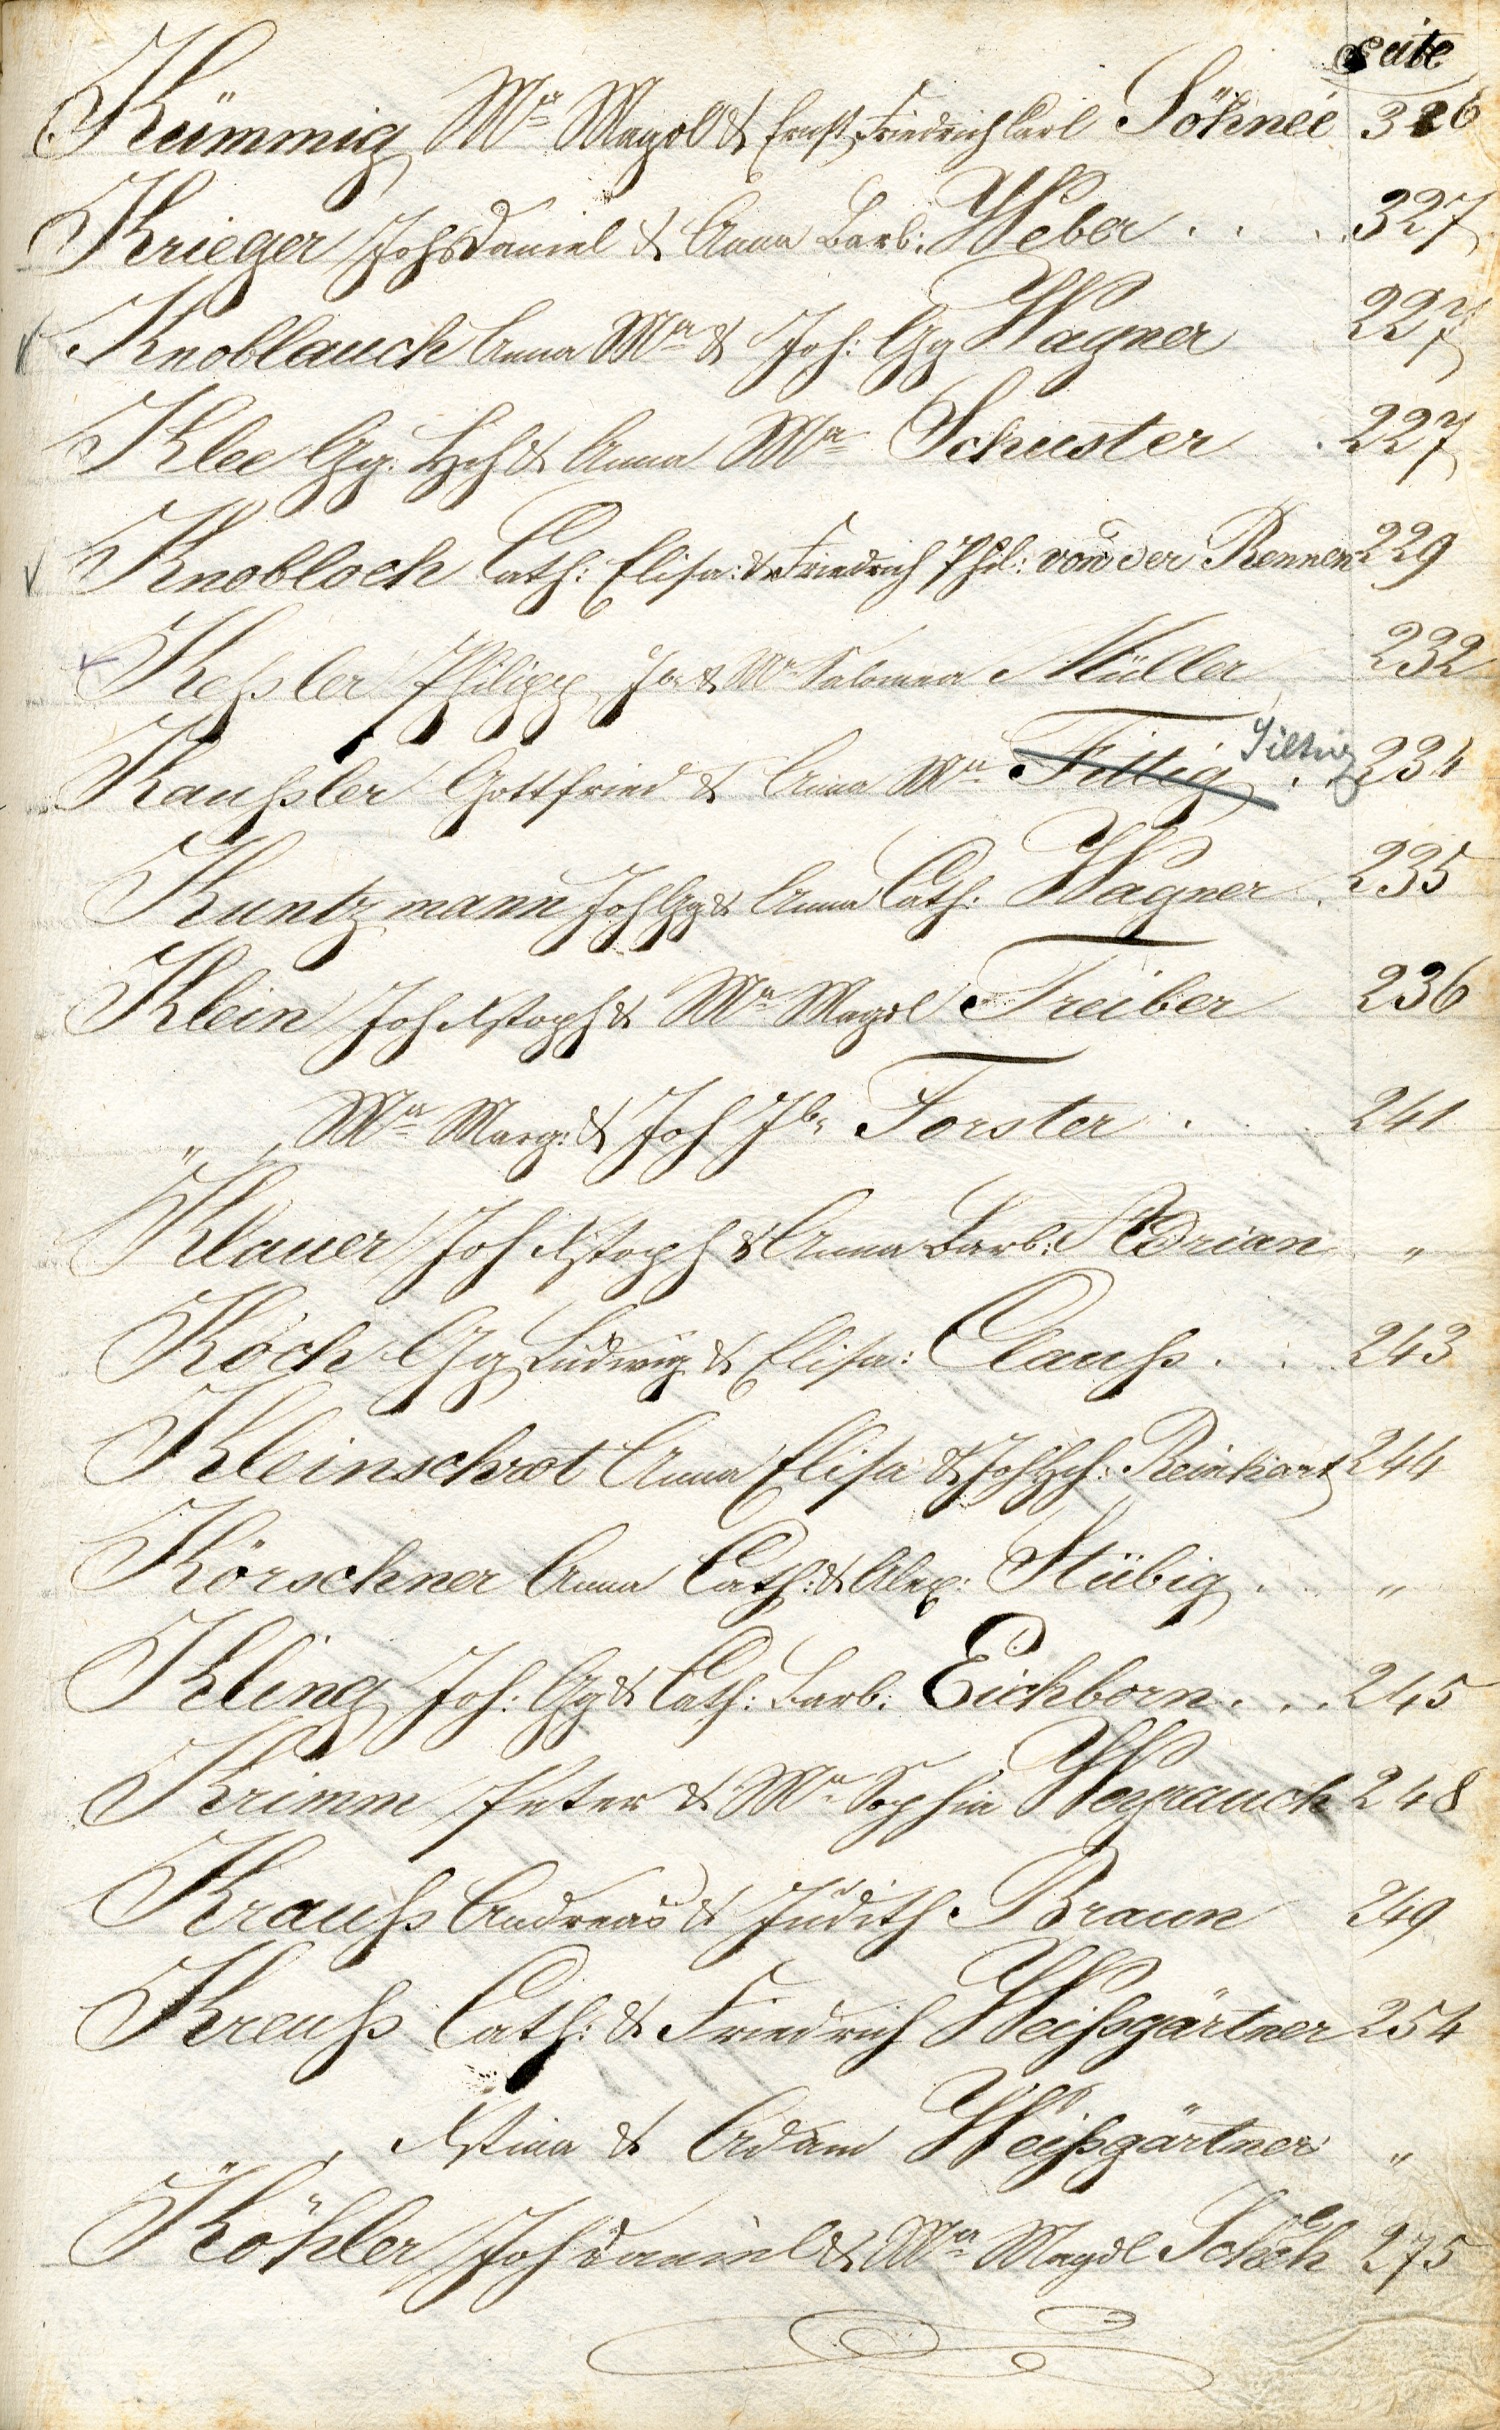 Seite
Kümmig Ma Magdl & Ernst Friedrich Carl Söhneé 326
Krieger Joh Daniel & Anna Barb: Weber . . . 327
Knoblauch Anna Ma & Joh: Gg Wagner 227
Klee Gg. Hch & Anna Ma Schuster . 227
Knobloch Cath: Elisa: & Friedrich Phil: von der Rennen 229
Keßler Philipp Jb & Ma Salomea Müller 232
Kaußler Gottfried & Anna Ma Fittig . 234
Kuntzmann Joh Gg & Anna Cath: Wagner . 235
Klein Joh Xstoph & Ma Magdl Treiber 236
" " Ma Marg: & Joh Jb Forster . . 241
Klauer Joh Xstoph & Anna Barb: Adrian "
Koch Gg Ludwig & Elisa: Clauß . . . 243
Kleinschrot Anna Elisa & Joh Hch: Reinhart 244
Körschner Anna Cath: & Alex: Stübig . . "
Kling Joh: Gg & Cath: Barb: Eichborn . . . 245
Krimm Peter & Ma Sophia Weyrauch 248
Krauß Andreas & Judith Braun 249
Kreuß Cath: & Friedrich Weißgärtner 254
" " Xstina & Adam Weißgärtner "
Köhler Joh Daniel & Ma Magdl 275